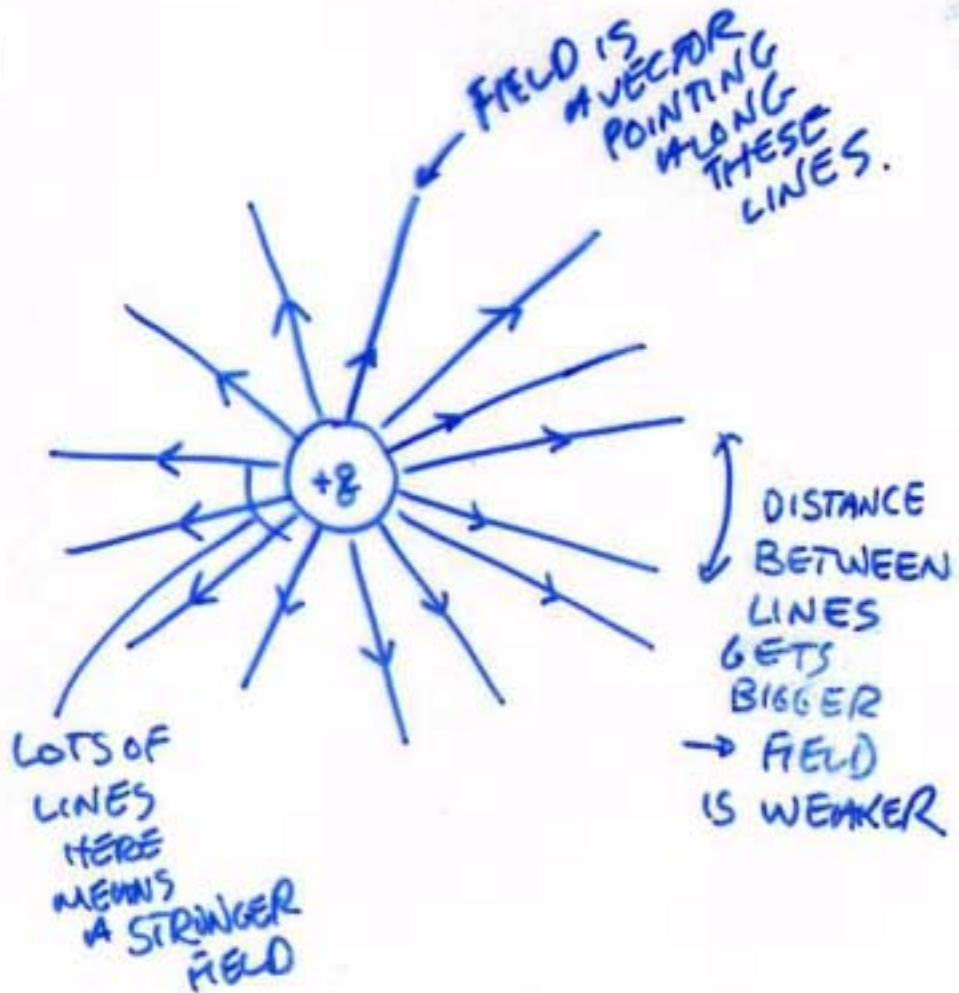 FIELD IS
A VECTOR
POINTING
ALONG
THESE
LINES.
+q
DISTANCE
BETWEEN
LINES
GETS
BIGGER
→ FIELD
IS WEAKER
LOTS OF
LINES
HERE
MEANS
A STRONGER
FIELD